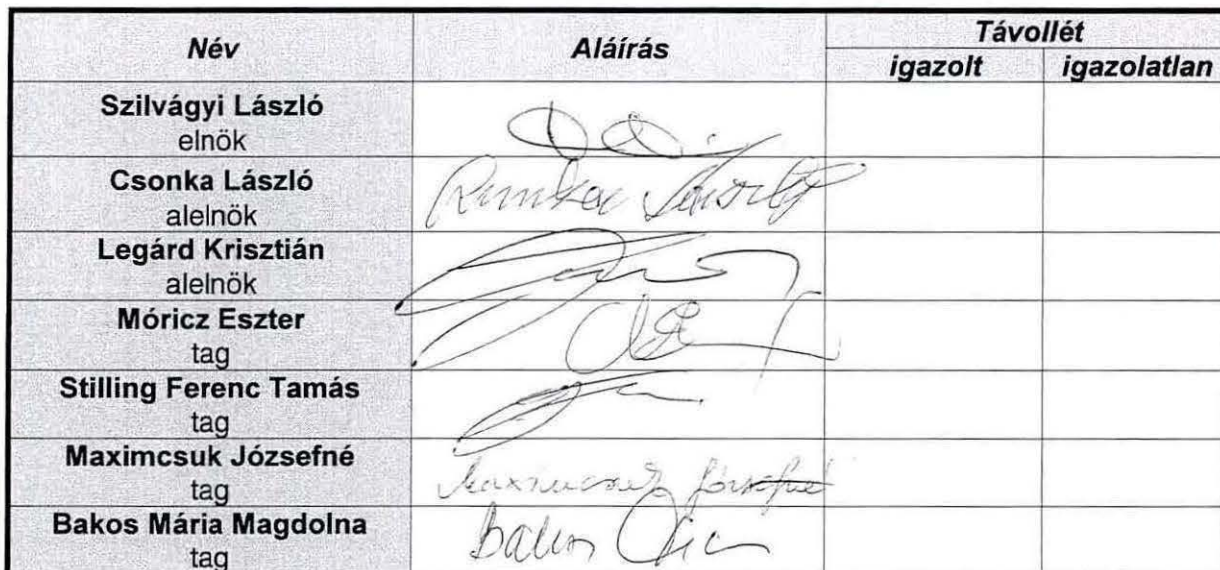 Név Aláírás Távollét
igazolt igazolatlan
Szilvágyi László
elnök
Csonka László
alelnök
Legárd Krisztián
alelnök
Móricz Eszter
tag
Stilling Ferenc Tamás
tag
Maximcsuk Józsefné Maximcsuk Józsefné
tag
Bakos Mária Magdolna Bakos
tag